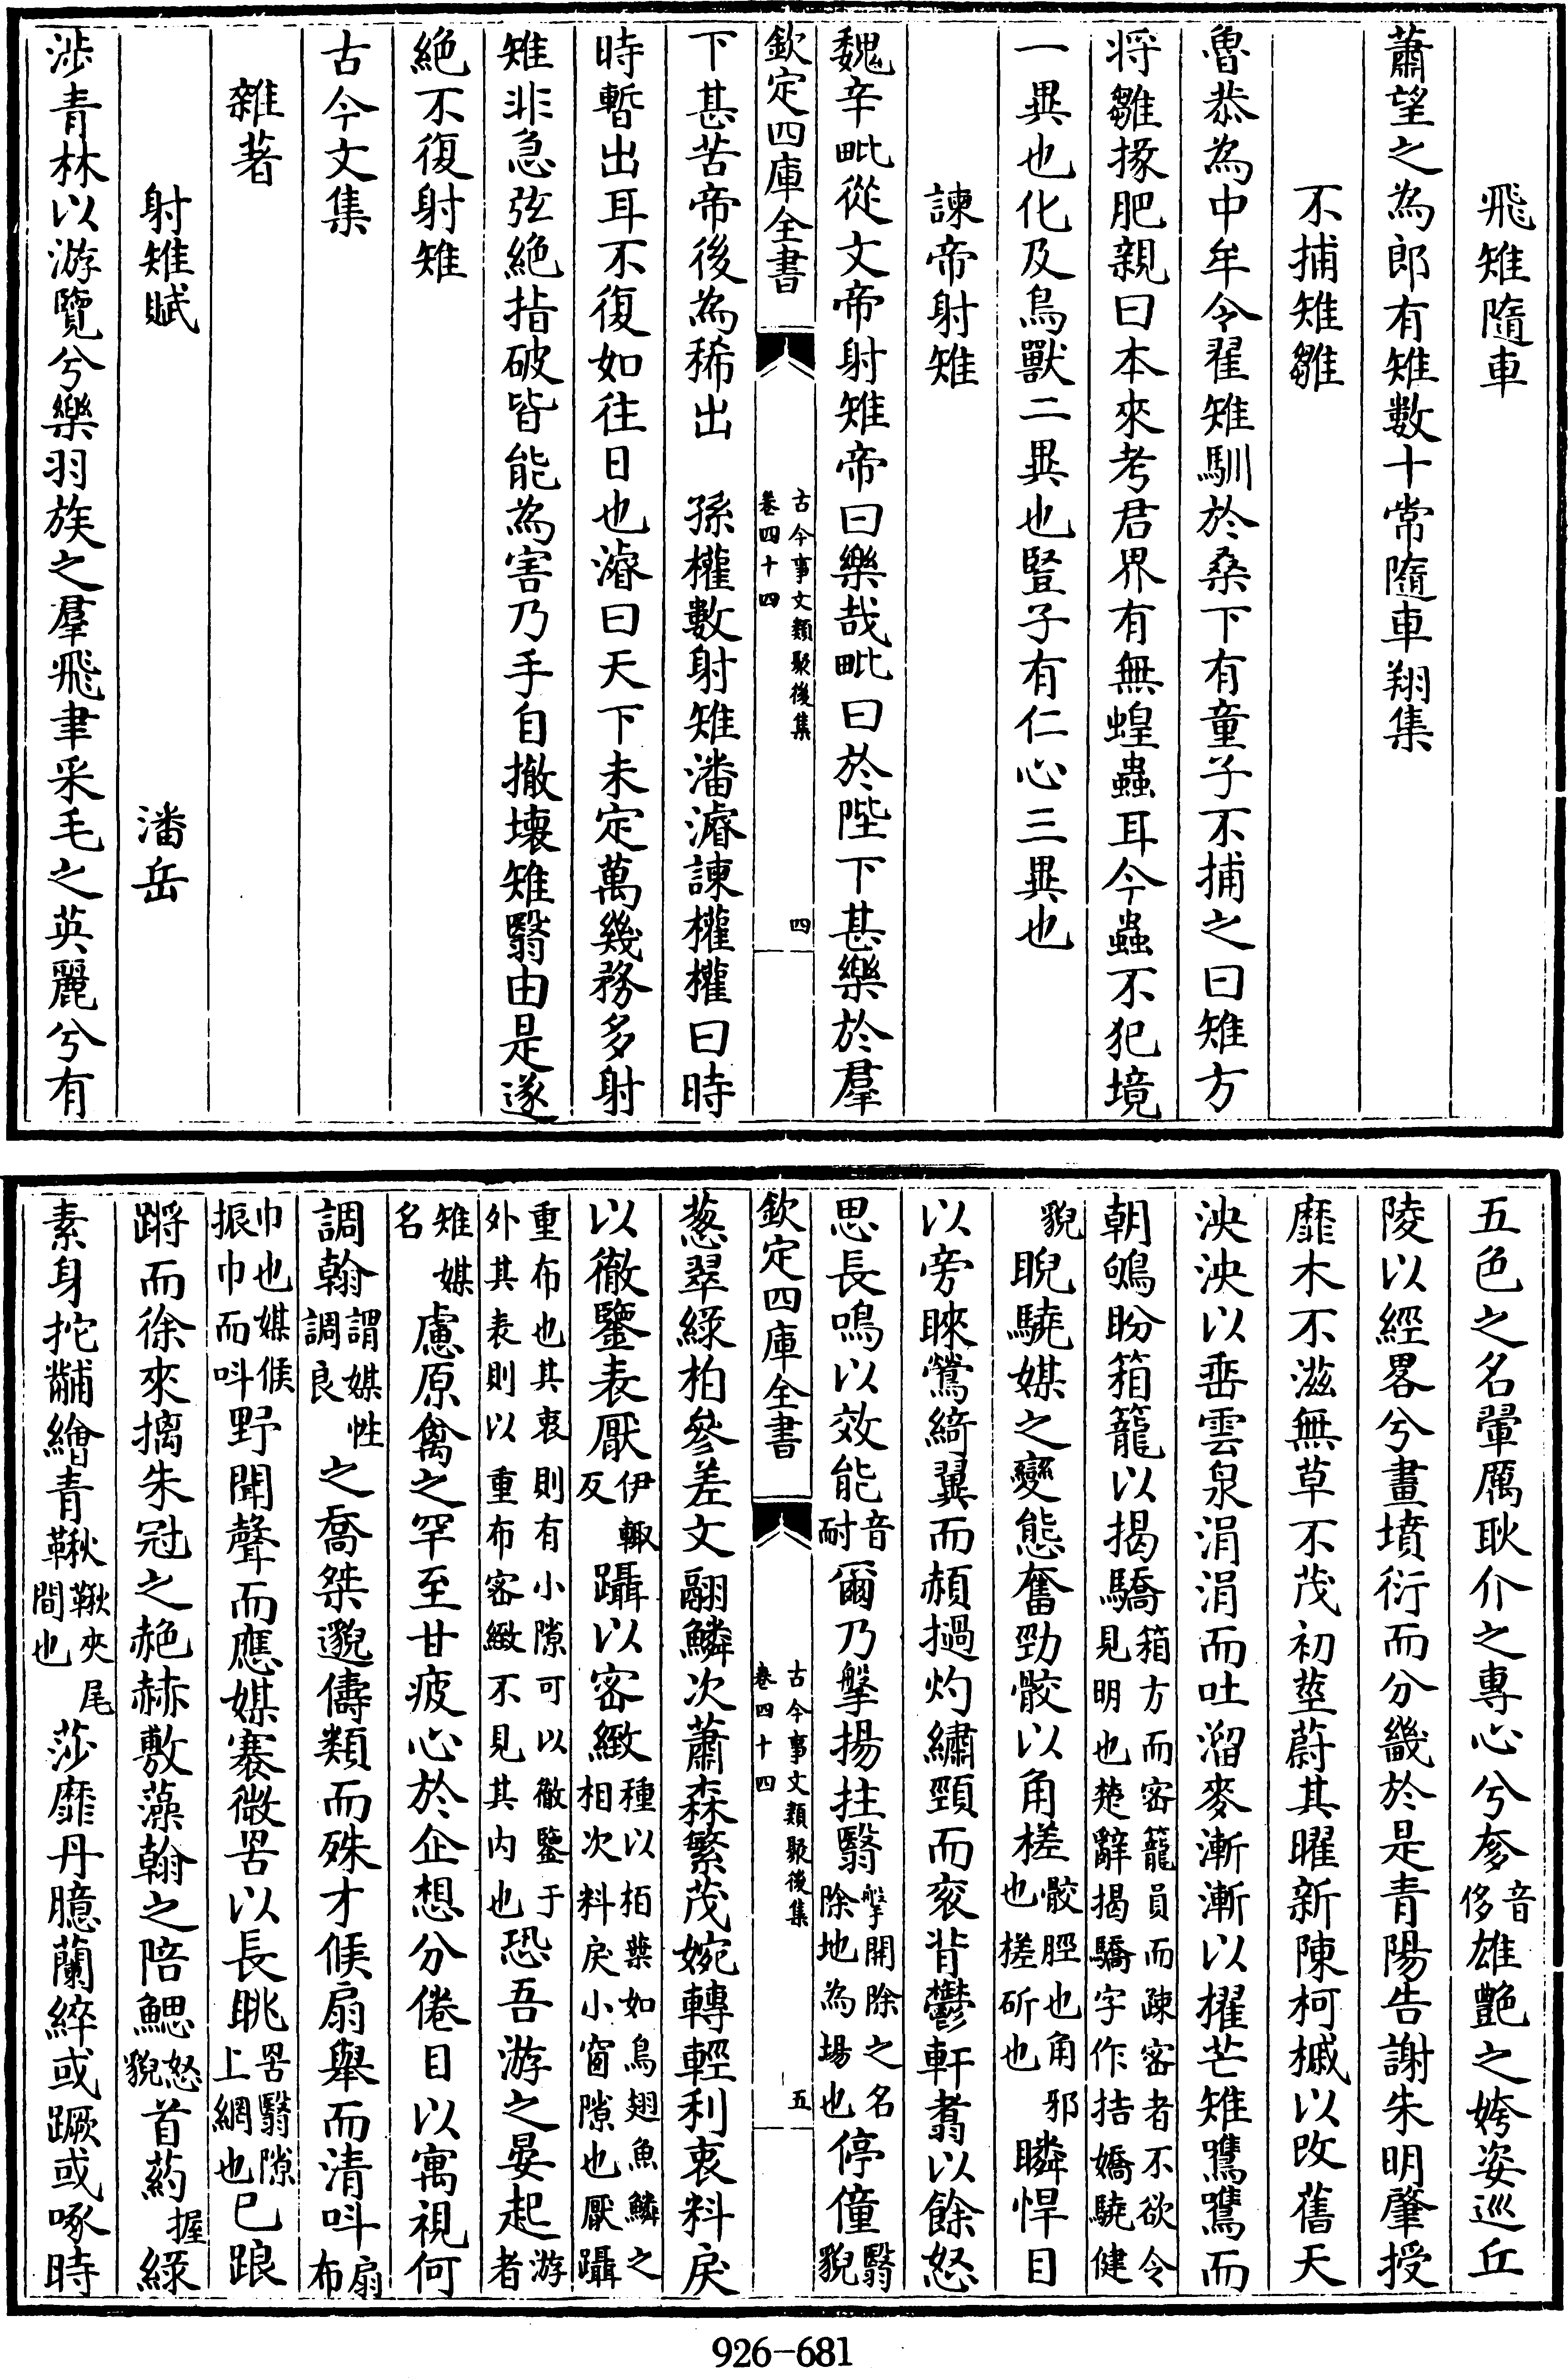 飛雉隨車
蕭望之為郎有雉數十常隨車翔集
不捕雉雛
魯恭為中牟令翟雉馴於桑下有童子不捕之曰雉方
将雛掾肥親曰本來考君界有無蝗蟲耳今蟲不犯境
一異也化及鳥獸二異也豎子有仁心三異也
諫帝射雉
魏辛毗從文帝射雉帝曰樂哉毗曰於陛下甚樂於羣
欽定四庫全書
古今事文類聚後集
卷四十四
四
下甚苦帝後為稀出　孫權數射雉潘濬諫權權曰時
時暫出耳不復如往日也濬曰天下未定萬幾務多射
雉非急弦絕指破皆能為害乃手自撤壞雉翳由是遂
絕不復射雉
古今文集
雜著
射雉賦　潘岳
涉青林以游覽兮樂羽族之羣飛聿采毛之英麗兮有
五色之名翬厲耿介之專心兮奓音侈雄艷之姱姿巡丘
陵以經畧兮畫墳衍而分畿於是青陽告謝朱明肇授
靡木不滋無草不茂初莖蔚其曜新陳柯槭以改舊天
泱泱以垂雲泉涓涓而吐溜麥漸漸以擢芒雉鷕鷕而
朝鴝盼箱籠以揭驕箱方而密籠員而疎密者不欲令見明也楚辭揭驕字作拮嬌驍健
貌睨驍媒之變態奮勁骹以角槎骹脛也角邪也槎斫也瞵悍目
以旁睞鶯綺翼而赬撾灼繡頸而衮背鬱軒翥以餘怒
思長鳴以效能音耐爾乃揫揚拄翳揫開除之名除地為場也停僮翳貌
欽定四庫全書
古今事文類聚後集
卷四十四
五
葱翠綠柏參差文翮鱗次蕭森繁茂婉轉輕利衷料戾
以徹鑒表厭伊輒反躡以密緻種以柏葉如鳥翅魚鱗之相次料戾小窗隙也厭躡
重布也其衷則有小隙可以徹鑒于外其表則以重布密緻不見其内也恐吾游之晏起游者
雉媒名慮原禽之罕至甘疲心於企想分倦目以寓視何
調翰謂媒性調良之喬桀邈儔類而殊才候扇舉而清呌扇布
巾也媒候振巾而呌野聞聲而應媒褰微罟以長眺罟翳隙上網也已踉
蹡而徐來摛朱冠之赩赫敷藻翰之陪鰓怒貌首葯握綠
素身拕黼繪青鞦鞦夾尾間也莎靡丹臆蘭綷或蹶或啄時
926-681